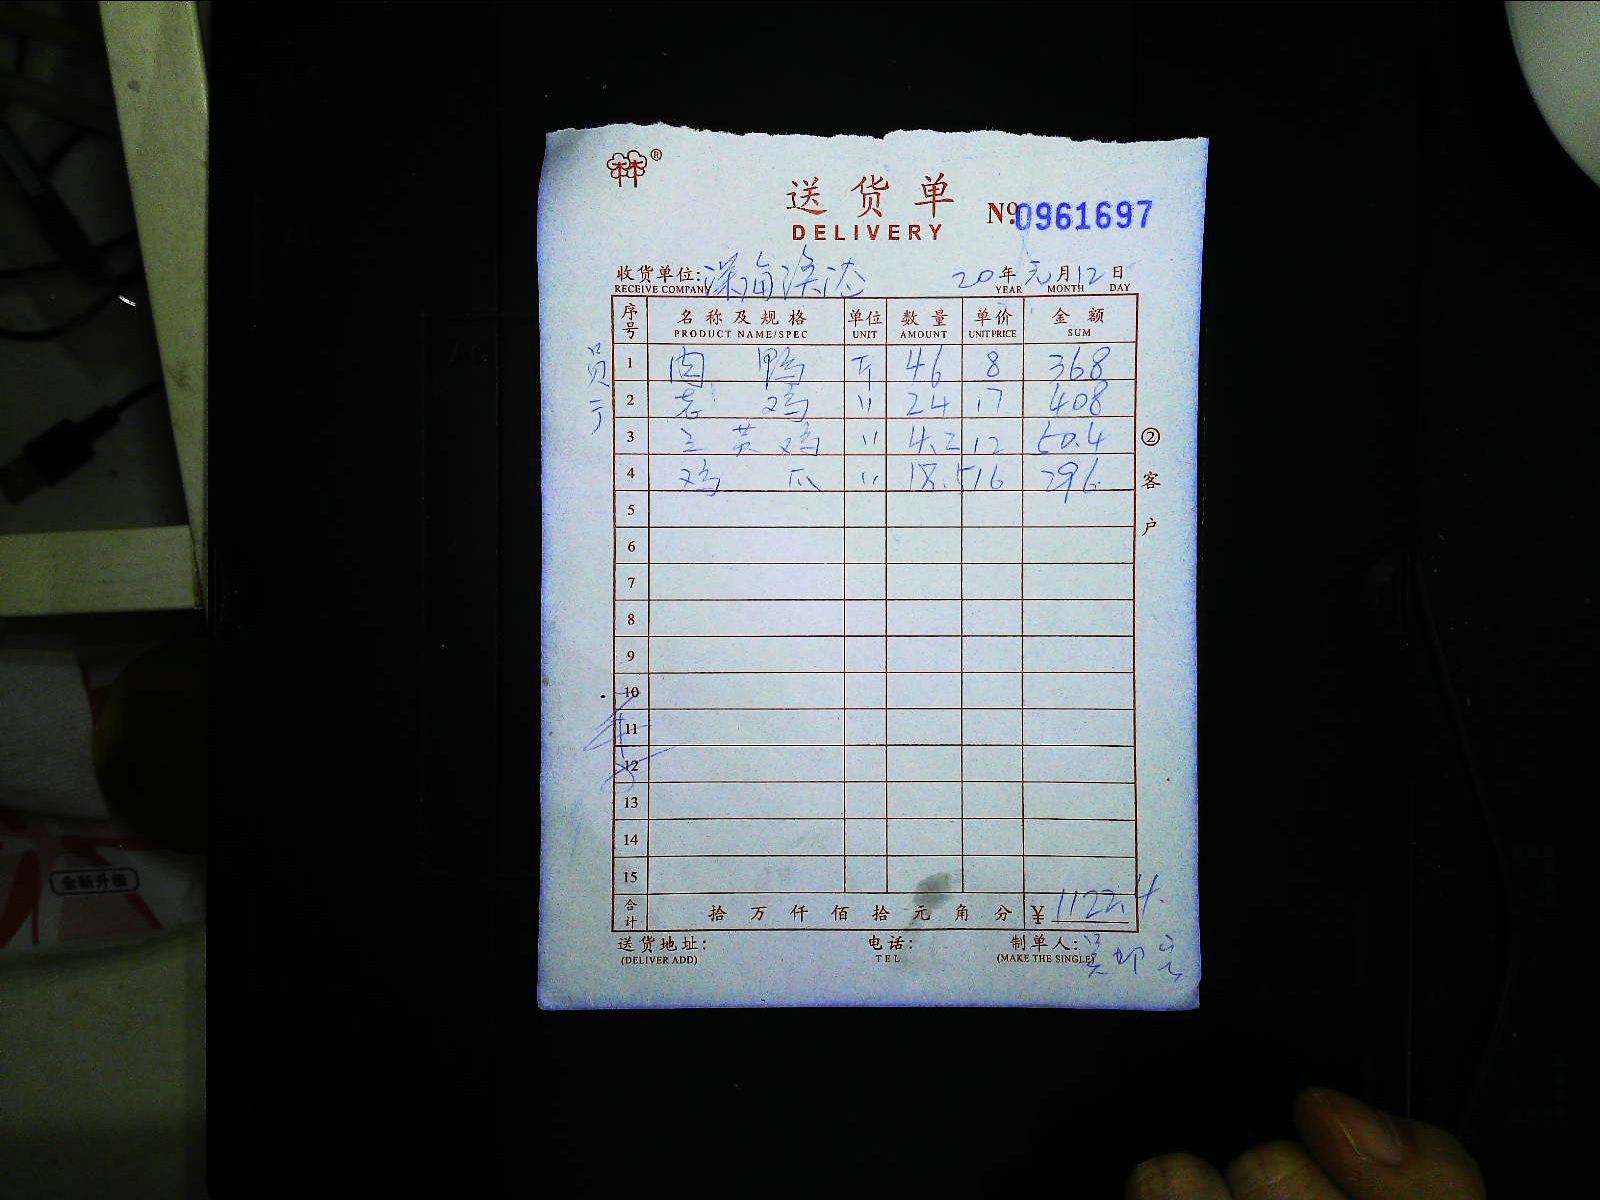 ®
送货单
DELIVERY
№ 0961697
收货单位: 深海
RECEIVE COMPANY
20年元月12日
YEAR MONTH DAY
序号 名称及规格 单位 数量 单价 金额
PRODUCT NAME/SPEC UNIT AMOUNT UNIT PRICE SUM
员
1 肉鸭 斤 46 8 368
2 老鸡 〃 24 17 408
3 三黄鸡 〃 4.2 12 50.4
4 鸡爪 〃 18.5 16 296
5
6
7
8
9
10
11
12
13
14
15
② 客户
合计 拾 万 仟 佰 拾 元 角 分 ¥ 1122.4
送货地址: 电话: 制单人: 吴
(DELIVER ADD) TEL (MAKE THE SINGLE)
全新升级